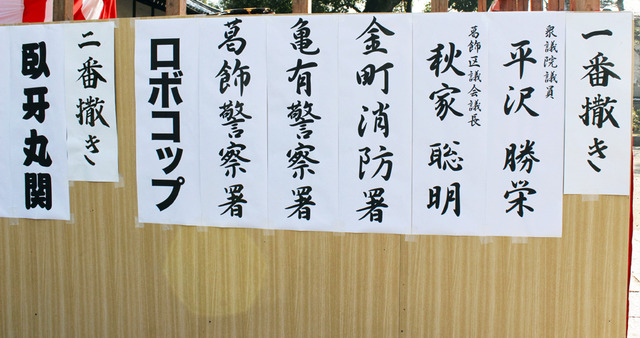 一番撒き
衆議院議員
平沢 勝栄
葛飾区議会議長
秋家 聡明
金町消防署
亀有警察署
葛飾警察署
ロボコップ
二番撒き
臥牙丸関